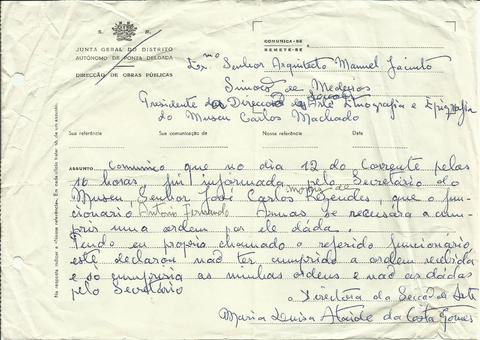 S. R.
JUNTA GERAL DO DISTRITO
AUTÓNOMO DE PONTA DELGADA
DIRECÇÃO DE OBRAS PÚBLICAS
COMUNICA-SE
REMETE-SE
Exmo Senhor Arquitecto Manuel Jacinto
de Medeiros
Presidente da Direcção Arte Etnografia e Epigrafia
do Museu Carlos Machado
Sua referência
Sua comunicação de
Nossa referência
Data
ASSUNTO Comunico que no dia 12 do corrente pelas
16 horas, fui informada pelo Secretário do
Museu, Senhor José Carlos Rezendes, que o fun-
cionário António Fernando Armas se recusára a cum-
prir uma ordem por ele dada.
Tendo eu própria chamado o referido funcionário,
este declarou não ter cumprido a ordem recebida
e só cumpriria as minhas ordens e não as dadas
pelo Secretário
a Directora da Secção de Arte
Maria Luisa Ataide da Costa Gomes